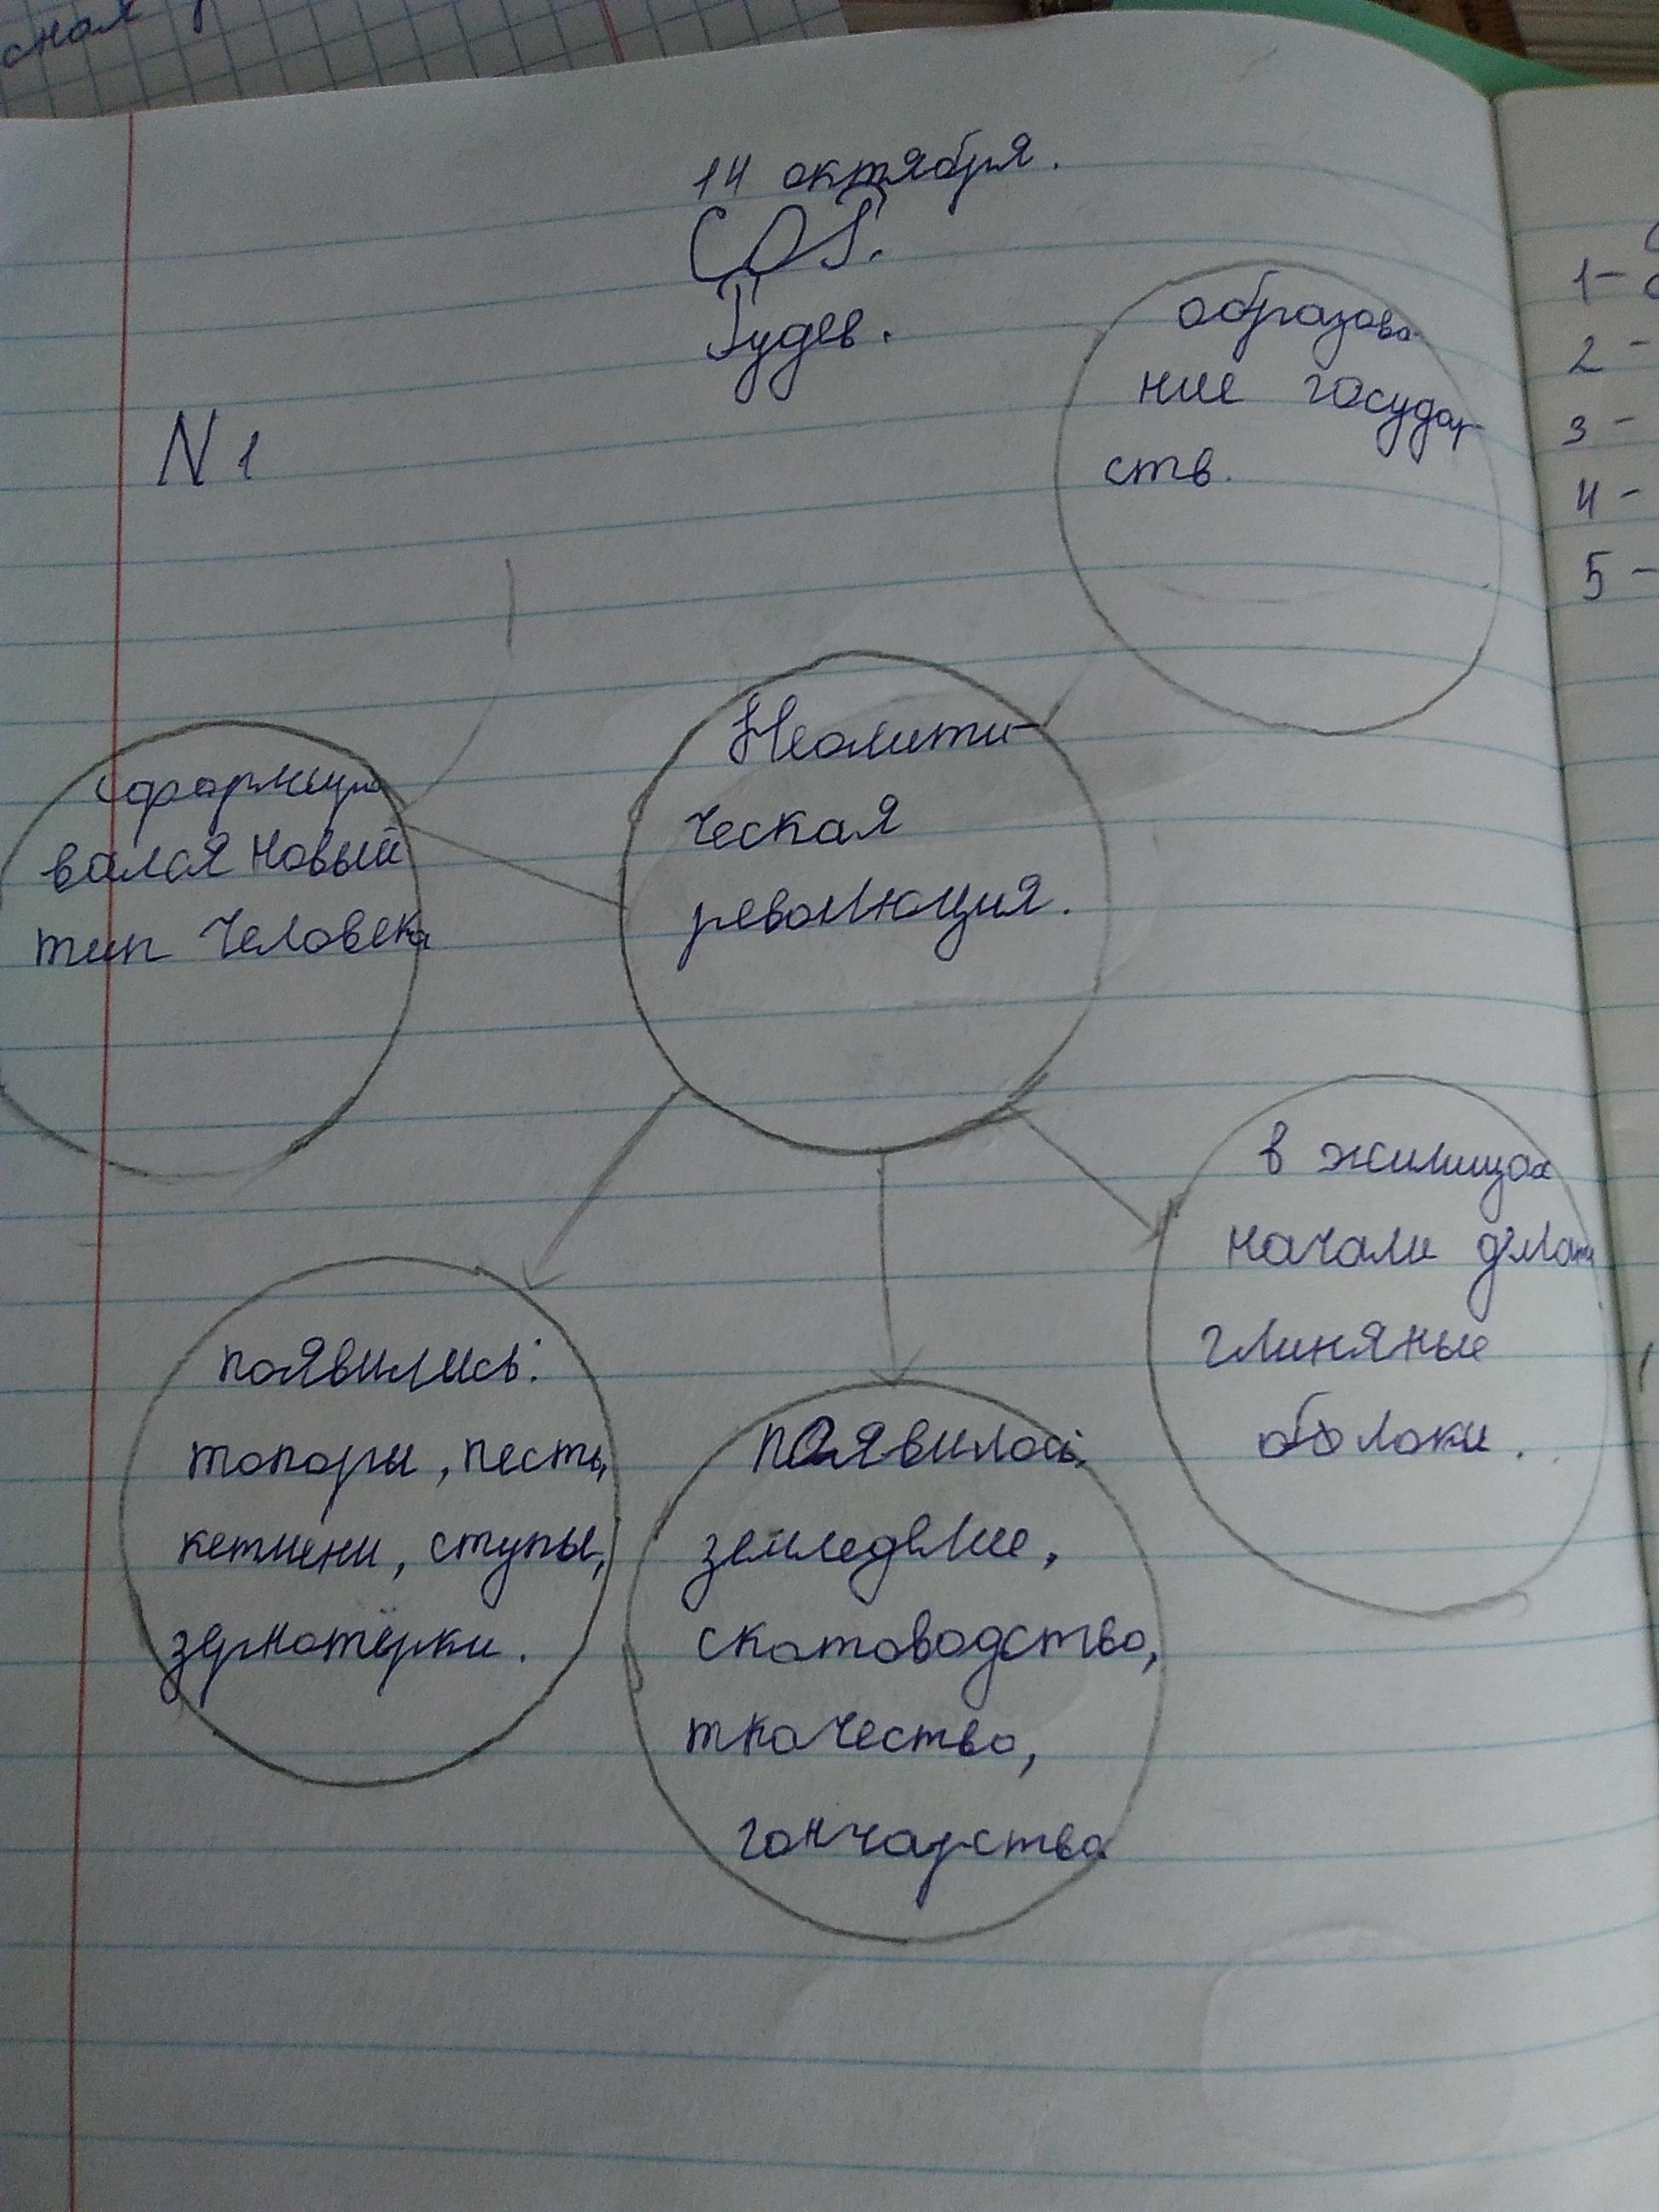 14 октября.
СОР.
N 1
образова-
ние государ-
ств.
Неолити-
ческая
революция.
сформиро
вался новый
тип человека
в жилищах
начали делать
глиняные
появились:
топоры, песты,
кетмени, ступы,
зернотёрки.
появилось
земледелие,
скотоводство,
ткачество,
гончарство
1-
2 -
3 -
4 -
5 -